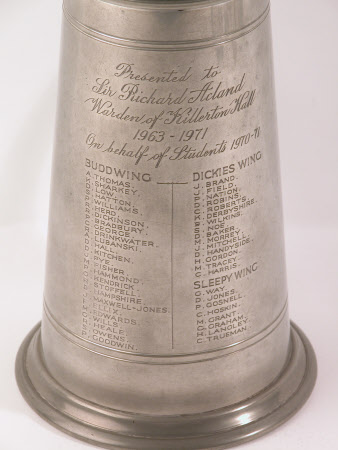 Presented to
Sir Richard Acland
Warden of Killerton Hall
1963 - 1971
On behalf of Students 1970-71
BUDD WING
A. THOMAS.
SHARKEY.
LOW.
HATTON.
WILLIAMS.
HERD.
DICKINSON.
BRADBURY.
GEORGE.
DRINKWATER.
LUBANSKI.
HALL.
KITCHEN.
PYE.
FISHER.
HAMMOND.
KENDRICK.
STOFFELL.
HAMPSHIRE.
MAXWELL-JONES.
ELLIX.
EDWARDS.
WILLS.
HEALE.
OWENS.
P. GOODWIN.
DICKIES WING.
J. BRAND.
J. FIELD.
P. NATION.
C. ROBINS.
C. ROBERTS.
B. DERBYSHIRE.
B. WILKINS.
S. NOE.
D. BAKER.
M. MORREY.
J. MITCHELL.
D. HANDYSIDE.
H. GORDON.
M. TRACEY.
C. HARRIS.
SLEEPY WING
G. WAY.
D. JONES.
P. GOSNELL.
C. HOSKIN.
M. GRANT.
M. GRAHAM.
H. LANGLEY.
C. TRUEMAN.